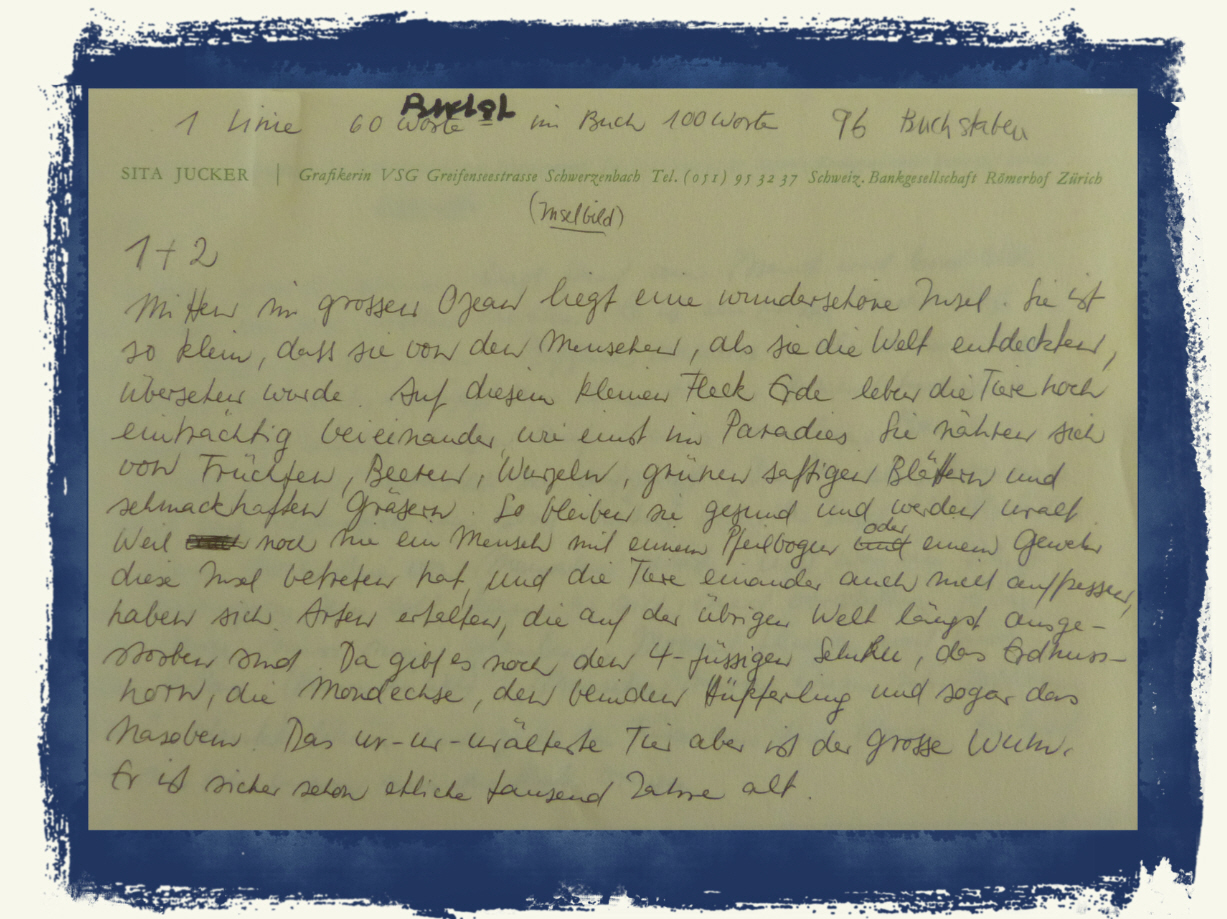 1 Linie 60 Worte im Buch 100 Worte 96 Buchstaben
SITA JUCKER | Grafikerin VSG Greifenseestrasse Schwerzenbach Tel. (051) 95 32 37 Schweiz. Bankgesellschaft Römerhof Zürich
(Inselbild)
1+2
Mitten im grossen Ozean liegt eine wunderschöne Insel. Sie ist
so klein, dass sie von den Menschen, als sie die Welt entdeckten,
übersehen wurde. Auf diesem kleinen Fleck Erde leben die Tiere noch
einträchtig beieinander, wie einst im Paradies. Sie nähren sich
von Früchten, Beeren, Wurzeln, grünen saftigen Blättern und
schmackhaften Gräsern. So bleiben sie gesund und werden uralt
Weil noch nie ein Mensch mit einem Pfeilbogen oder einem Gewehr
diese Insel betreten hat, und die Tiere einander auch nicht auffressen,
haben sich Arten erhalten, die auf der übrigen Welt längst ausge-
storben sind. Da gibt es noch den 4-füssigen das Erdnuss-
horn, die Mondechse, den Hüpferling und sogar das
Nasobem. Das ur-ur-urälteste Tier aber ist der grosse
Er ist sicher schon etliche tausend Jahre alt.